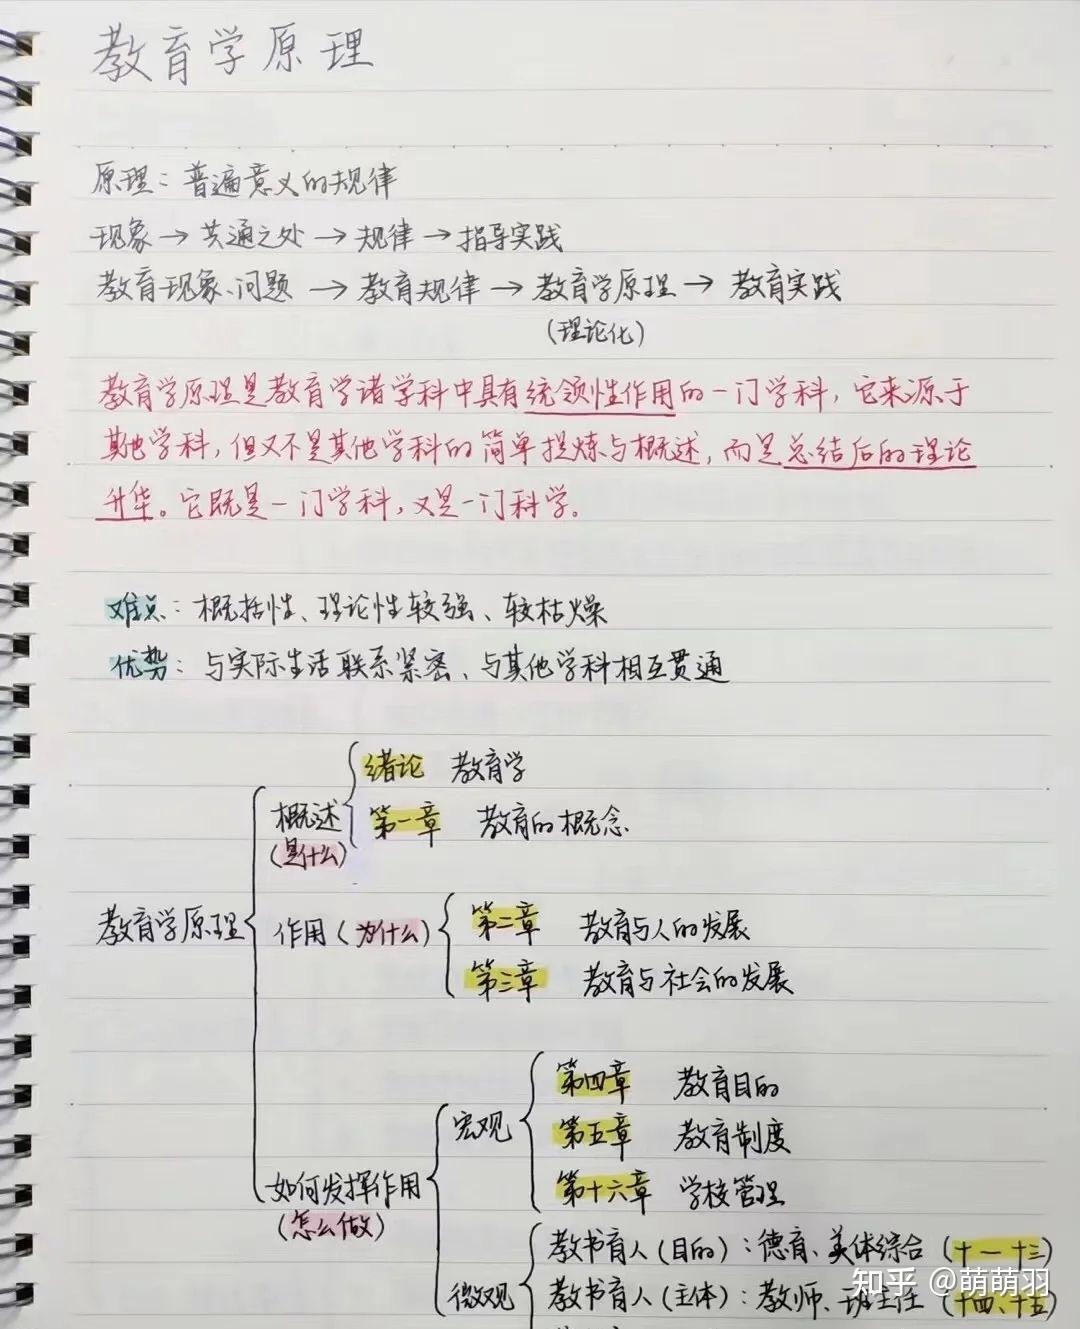 教育学原理
原理：普遍意义的规律
现象→共通之处→规律→指导实践
教育现象、问题→教育规律→教育学原理→教育实践
(理论化)
教育学原理是教育学诸学科中具有统领性作用的一门学科，它来源于
其他学科，但又不是其他学科的简单提炼与概述，而是总结后的理论
升华。它既是一门学科，又是一门科学。
难点：概括性、理论性较强、较枯燥
优势：与实际生活联系紧密、与其他学科相互贯通
绪论 教育学
概述 第一章 教育的概念
(是什么)
教育学原理 作用(为什么) 第二章 教育与人的发展
第三章 教育与社会的发展
第四章 教育目的
宏观 第五章 教育制度
如何发挥作用 第十六章 学校管理
(怎么做)
教书育人(目的)：德育、美体综合(十一—十三)
微观 教书育人(主体)：教师、班主任(十四、十五)
知乎 @萌萌羽